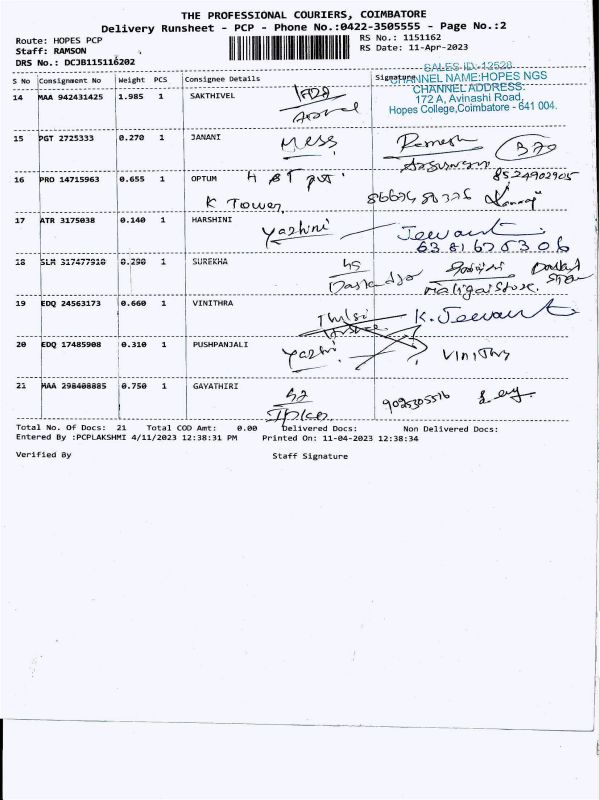 THE PROFESSIONAL COURIERS, COIMBATORE
Delivery Runsheet - PCP - Phone No.:0422-3505555 - Page No.:2
Route: HOPES PCP RS No.: 1151162
Staff: RAMSON RS Date: 11-Apr-2023
DRS No.: DCJB115116202
SALES ID:12528
CHANNEL NAME:HOPES NGS
CHANNEL ADDRESS:
172 A, Avinashi Road,
Hopes College,Coimbatore - 641 004.
S No Consignment No Weight PCS Consignee Details Signature
14 MAA 942431425 1.985 1 SAKTHIVEL
15 PGT 2725333 0.270 1 JANANI Mess Ramesh 370
8524902905
16 PRO 14715963 0.655 1 OPTUM
K Tower
17 ATR 3175038 0.140 1 HARSHINI Yazhini Jeevant
6381675306
18 SLM 317477910 0.290 1 SUREKHA
Maligai Store.
19 EDQ 24563173 0.660 1 VINITHRA Thulsi K. Jeevant
20 EDQ 17485908 0.310 1 PUSHPANJALI Yazhi
21 MAA 298408885 0.750 1 GAYATHIRI
Total No. Of Docs: 21 Total COD Amt: 0.00 Delivered Docs: Non Delivered Docs:
Entered By :PCPLAKSHMI 4/11/2023 12:38:31 PM Printed On: 11-04-2023 12:38:34
Verified By Staff Signature